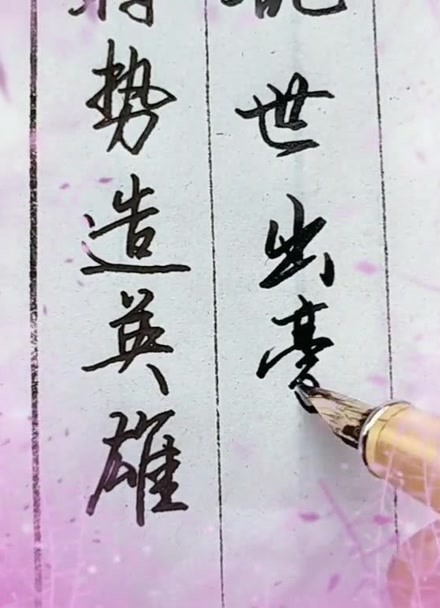 世出豪
势造英雄